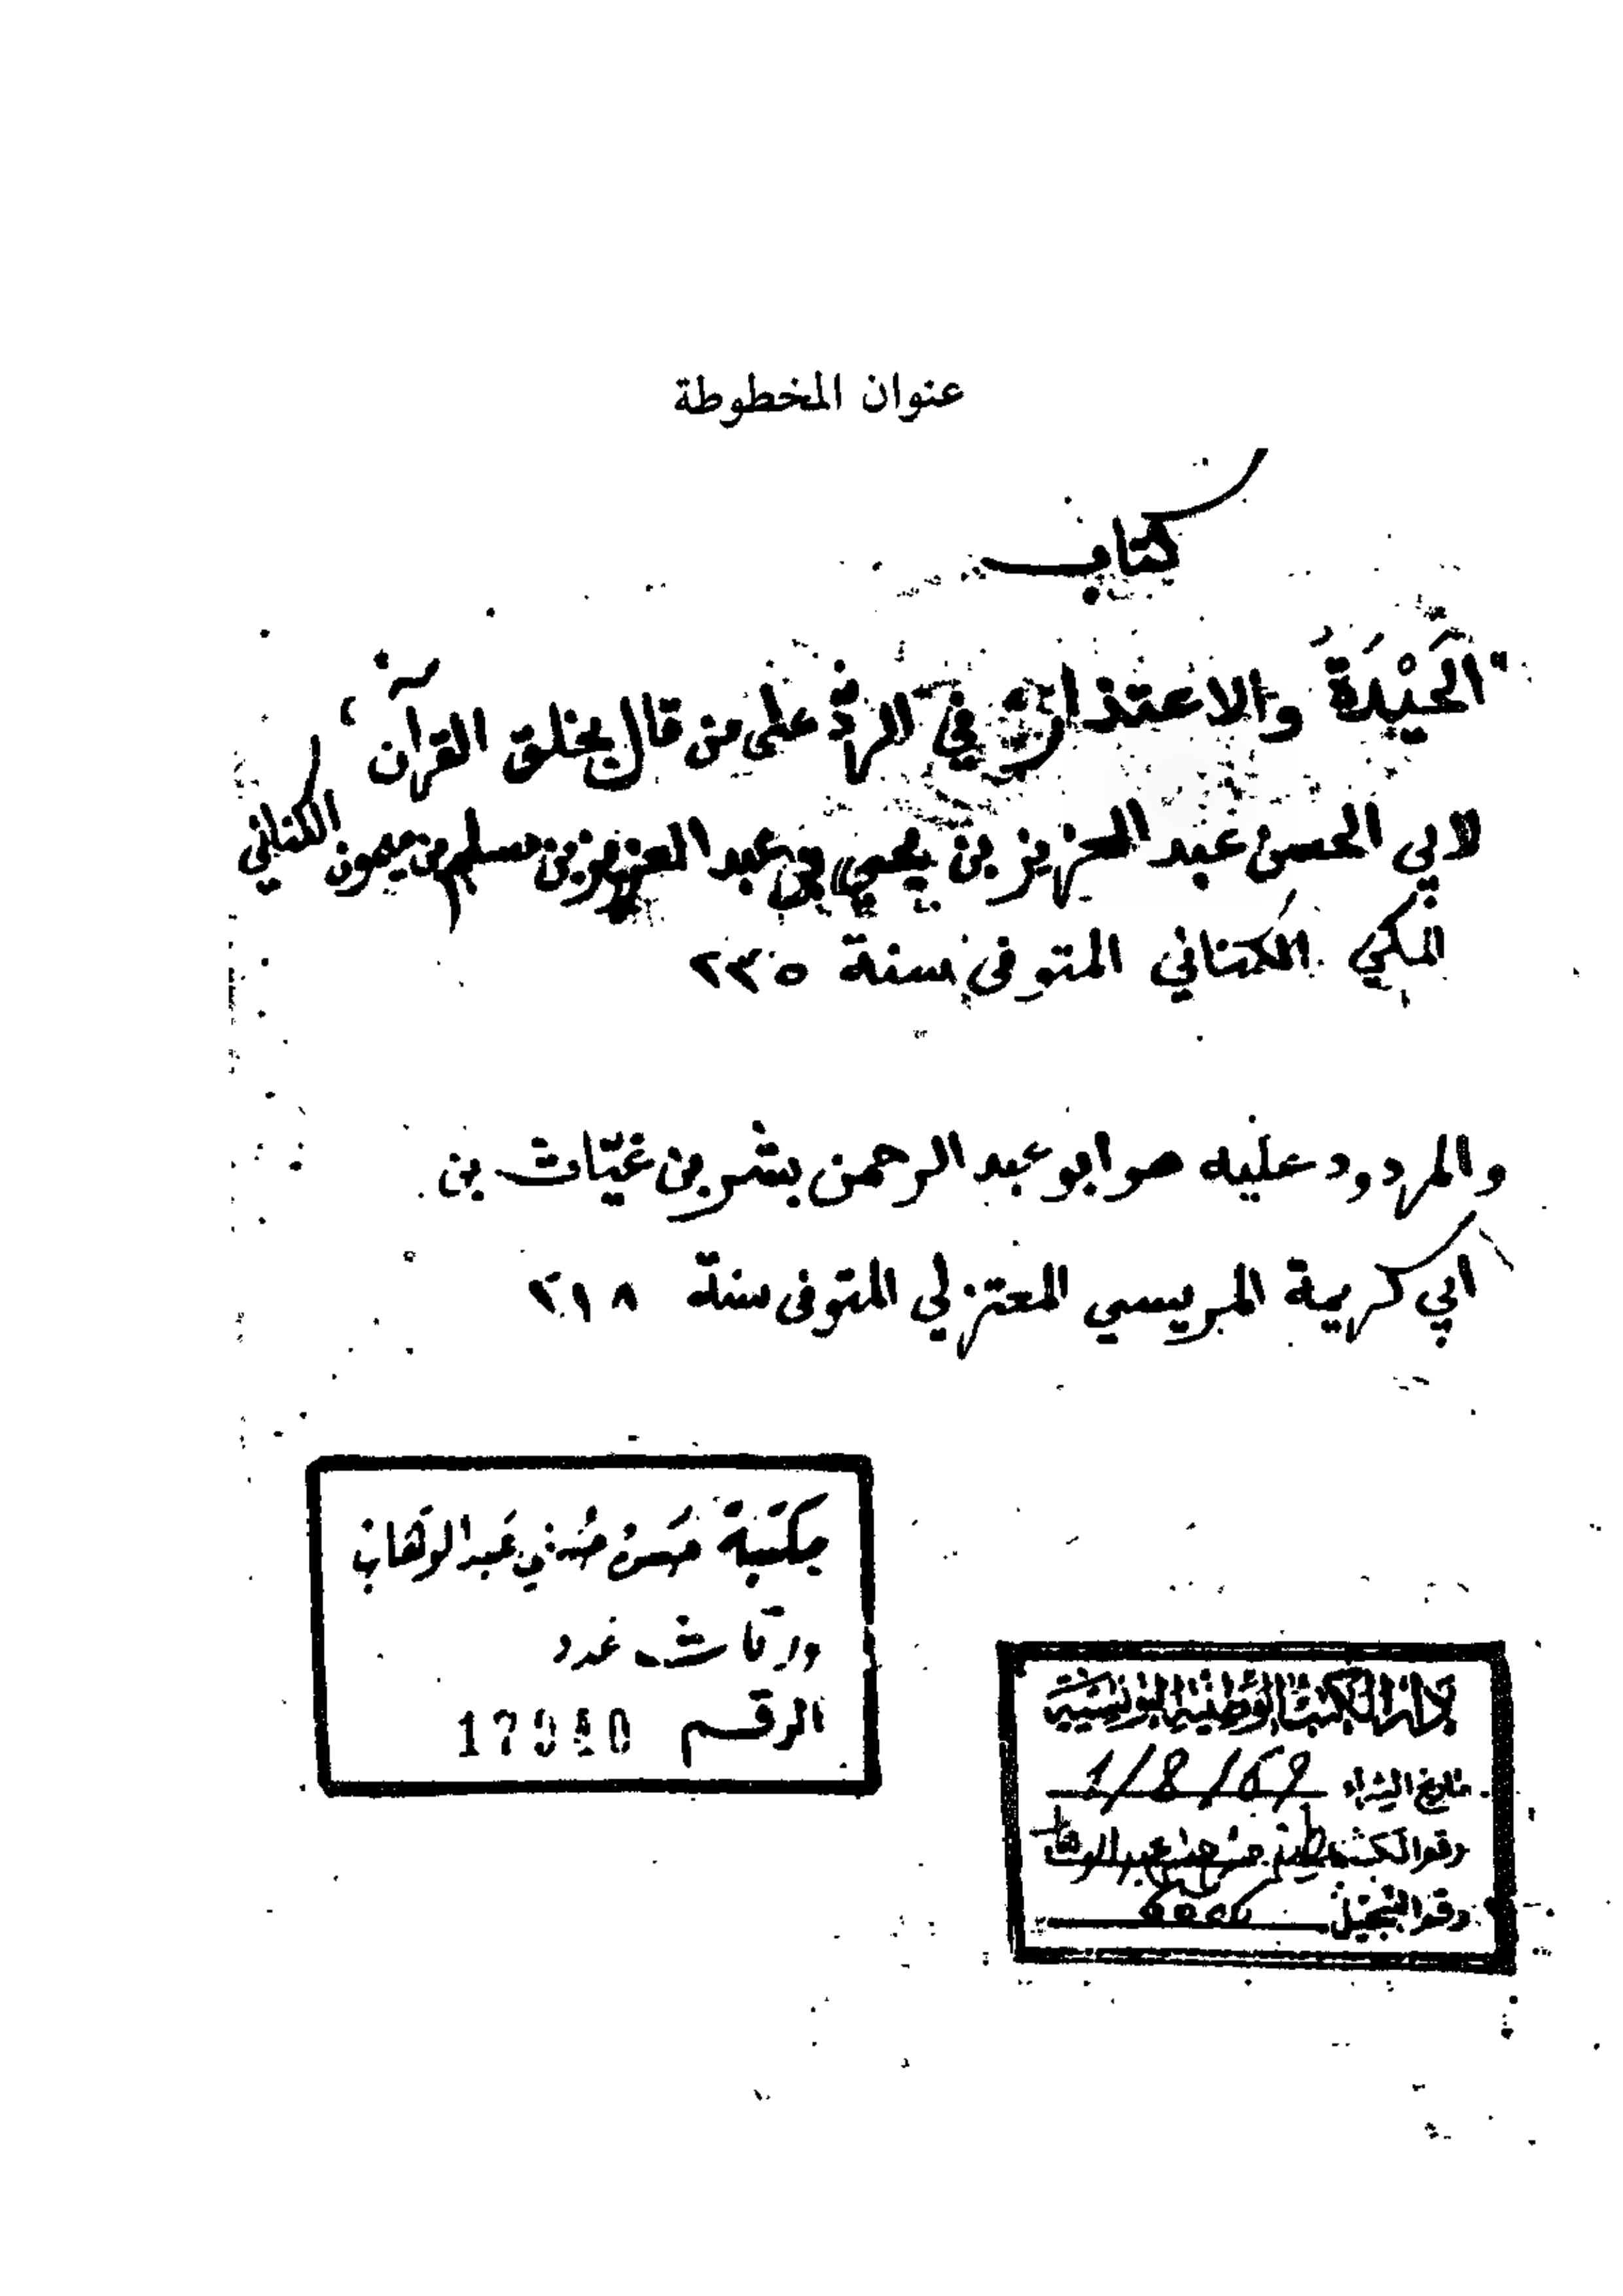 عنوان المخطوطة
كتاب
"الحَيْدَةُ والاعتذار في الردّ على من قال بخلق القرآن"
لابي الحسن عبد العزيز بن يحيى بن عبد العزيز بن مسلم بن ميمون الكناني
المكي الكناني المتوفى سنة ٢٣٥
والمردود عليه هو ابو عبد الرحمن بشر بن غيّاث بن
ابي كريمة المريسي المعتزلي المتوفى سنة ٢١٨
مكتبة حسن حسني عبد الوهاب
ورقات عدد
الرقم 17940
دار الكتب الوطنية التونسية
تاريخ الشراء 1/8/69